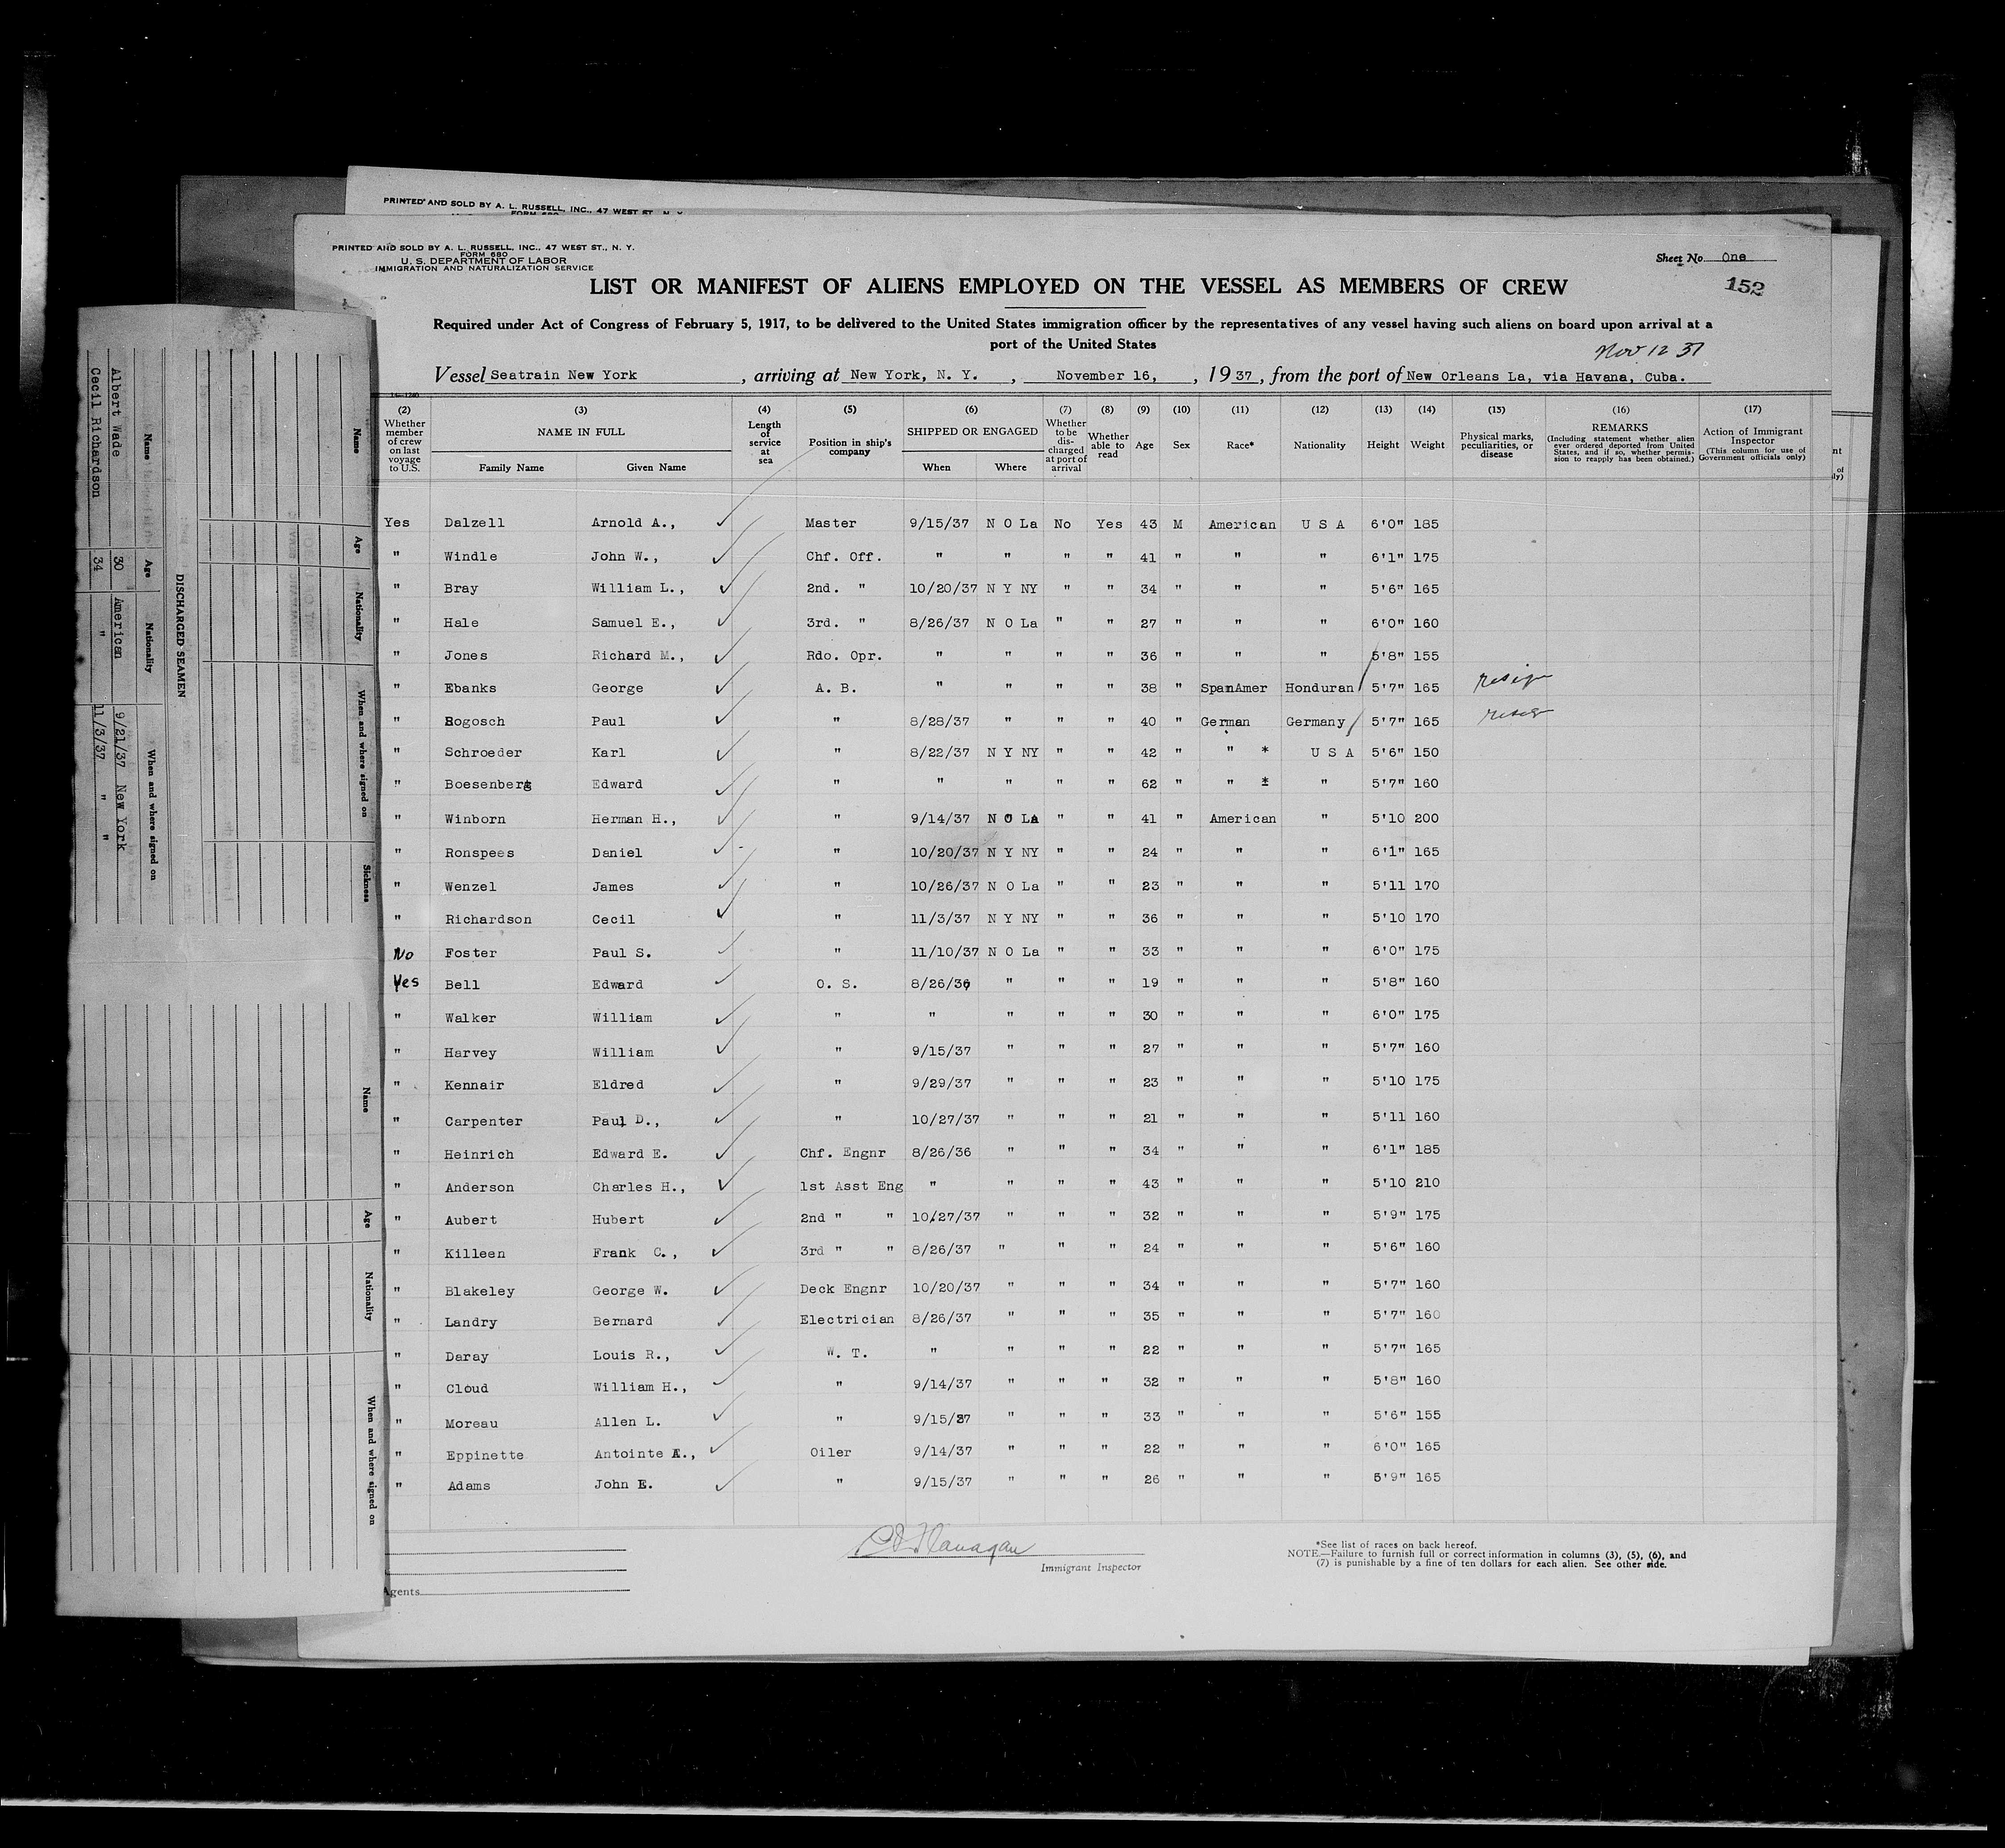 PRINTED AND SOLD BY A. L. RUSSELL, INC., 47 WEST ST., N. Y.
PRINTED AND SOLD BY A. L. RUSSELL, INC., 47 WEST ST., N. Y.
FORM 680
U. S. DEPARTMENT OF LABOR
IMMIGRATION AND NATURALIZATION SERVICE
Sheet No One
152
LIST OR MANIFEST OF ALIENS EMPLOYED ON THE VESSEL AS MEMBERS OF CREW
Required under Act of Congress of February 5, 1917, to be delivered to the United States immigration officer by the representatives of any vessel having such aliens on board upon arrival at a
port of the United States
Nov 12 37
Vessel Seatrain New York, arriving at New York, N. Y., November 16, , 1937, from the port of New Orleans La, via Havana, Cuba.
(2) (3) (4) (5) (6) (7) (8) (9) (10) (11) (12) (13) (14) (15) (16) (17)
Whether member of crew on last voyage to U.S. NAME IN FULL Family Name Given Name Length of service at sea Position in ship's company SHIPPED OR ENGAGED When Where Whether to be discharged at port of arrival Whether able to read Age Sex Race* Nationality Height Weight Physical marks, peculiarities, or disease REMARKS (Including statement whether alien ever ordered deported from United States, and if so, whether permission to reapply has been obtained.) Action of Immigrant Inspector (This column for use of Government officials only)
Yes Dalzell Arnold A., Master 9/15/37 N O La No Yes 43 M American U S A 6'0" 185
" Windle John W., Chf. Off. " " " " 41 " " " 6'1" 175
" Bray William L., 2nd. " 10/20/37 N Y NY " " 34 " " " 5'6" 165
" Hale Samuel E., 3rd. " 8/26/37 N O La " " 27 " " " 6'0" 160
" Jones Richard M., Rdo. Opr. " " " " 36 " " " 5'8" 155
" Ebanks George A. B. " " " " 38 " SpanAmer Honduran 5'7" 165
" Rogosch Paul " 8/28/37 " " " 40 " German Germany 5'7" 165
" Schroeder Karl " 8/22/37 N Y NY " " 42 " " * U S A 5'6" 150
" Boesenberg Edward " " " " " 62 " " * " 5'7" 160
" Winborn Herman H., " 9/14/37 N O La " " 41 " American " 5'10 200
" Ronspees Daniel " 10/20/37 N Y NY " " 24 " " " 6'1" 165
" Wenzel James " 10/26/37 N O La " " 23 " " " 5'11 170
" Richardson Cecil " 11/3/37 N Y NY " " 36 " " " 5'10 170
No Foster Paul S. " 11/10/37 N O La " " 33 " " " 6'0" 175
Yes Bell Edward O. S. 8/26/36 " " " 19 " " " 5'8" 160
" Walker William " " " " " 30 " " " 6'0" 175
" Harvey William " 9/15/37 " " " 27 " " " 5'7" 160
" Kennair Eldred " 9/29/37 " " " 23 " " " 5'10 175
" Carpenter Paul D., " 10/27/37 " " " 21 " " " 5'11 160
" Heinrich Edward E. Chf. Engnr 8/26/36 " " " 34 " " " 6'1" 185
" Anderson Charles H., 1st Asst Eng " " " " 43 " " " 5'10 210
" Aubert Hubert 2nd " " 10/27/37 " " " 32 " " " 5'9" 175
" Killeen Frank C., 3rd " " 8/26/37 " " " 24 " " " 5'6" 160
" Blakeley George W. Deck Engnr 10/20/37 " " " 34 " " " 5'7" 160
" Landry Bernard Electrician 8/26/37 " " " 35 " " " 5'7" 160
" Daray Louis R., W. T. " " " " 22 " " " 5'7" 165
" Cloud William H., " 9/14/37 " " " 32 " " " 5'8" 160
" Moreau Allen L. " 9/15/37 " " " 33 " " " 5'6" 155
" Eppinette Antointe A., Oiler 9/14/37 " " " 22 " " " 6'0" 165
" Adams John E. " 9/15/37 " " " 26 " " " 5'9" 165
Immigrant Inspector
Agents
*See list of races on back hereof.
NOTE.—Failure to furnish full or correct information in columns (3), (5), (6), and
(7) is punishable by a fine of ten dollars for each alien. See other side.
Name Age Nationality When and where signed on Sickness
DISCHARGED SEAMEN
Name Age Nationality When and where signed on
Albert Wade 30 American 9/21/37 New York
Cecil Richardson 34 " 11/3/37 " "
Name Age Nationality When and where signed on